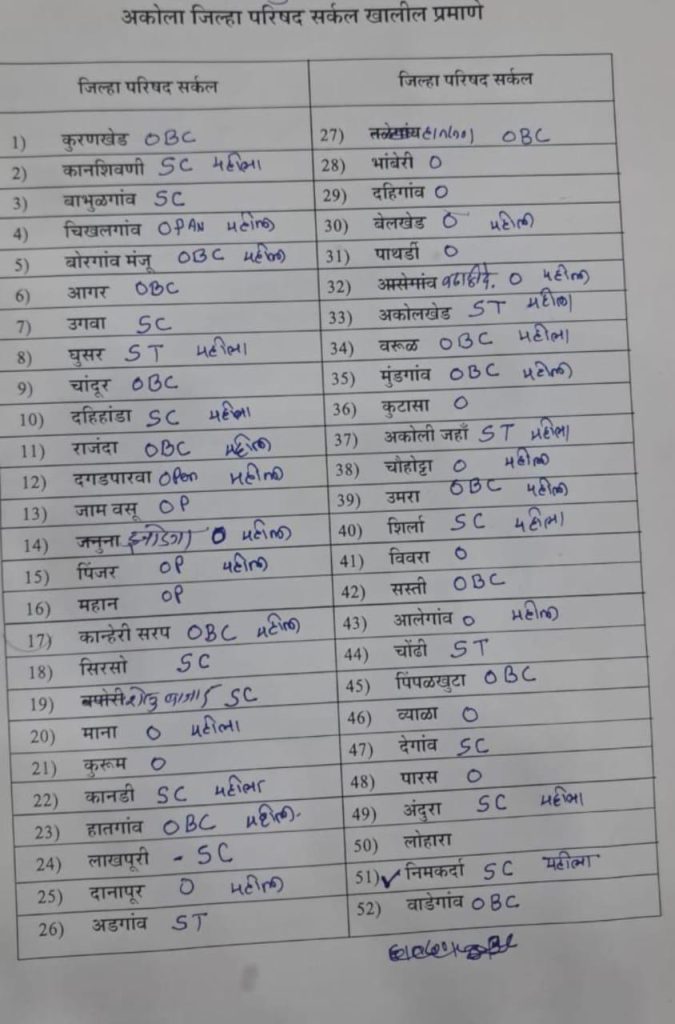 अकोला जिल्हा परिषद सर्कल खालील प्रमाणे
जिल्हा परिषद सर्कल
1) कुरणखेड OBC
2) कानशिवणी SC महीला
3) बाभुळगांव SC
4) चिखलगांव OPAN महीला
5) बोरगांव मंजू OBC महीला
6) आगर OBC
7) उगवा SC
8) घुसर ST महीला
9) चांदूर OBC
10) दहिहांडा SC महीला
11) राजंदा OBC महीला
12) दगडपारवा OPen महीला
13) जाम वसू OP
14) जनुना O महीला
15) पिंजर OP महीला
16) महान OP
17) कान्हेरी सरप OBC महीला
18) सिरसो SC
19) SC
20) माना O महीला
21) कुरूम O
22) कानडी SC महीला
23) हातगांव OBC महीला
24) लाखपूरी - SC
25) दानापूर O महीला
26) अडगांव ST
जिल्हा परिषद सर्कल
27) OBC
28) भांबेरी O
29) दहिगांव O
30) बेलखेड O महीला
31) पाथर्डी O
32) O महीला
33) अकोलखेड ST महीला
34) वरूळ OBC महीला
35) मुंडगांव OBC महीला
36) कुटासा O
37) अकोली जहाँ ST महीला
38) चौहोट्टा O महीला
39) उमरा OBC महीला
40) शिर्ला SC महीला
41) विवरा O
42) सस्ती OBC
43) आलेगांव O महीला
44) चोंढी ST
45) पिंपळखुटा OBC
46) व्याळा O
47) देगांव SC
48) पारस O
49) अंदुरा SC महीला
50) लोहारा
51) ✓ निमकर्दा SC महीला
52) वाडेगांव OBC